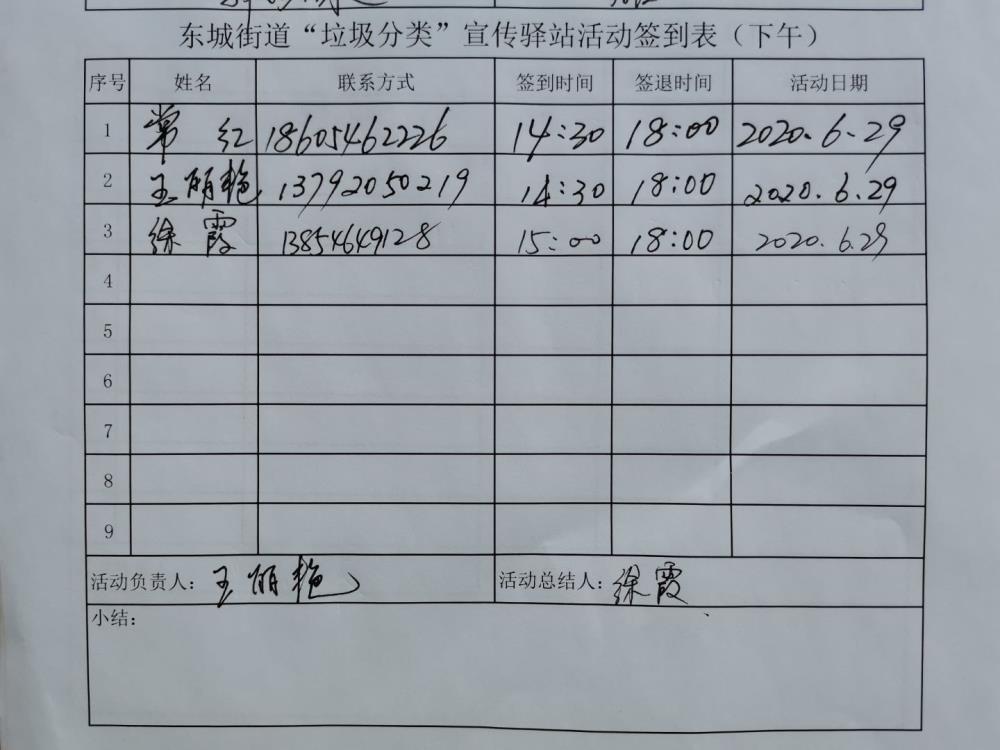 东城街道“垃圾分类”宣传驿站活动签到表（下午）
序号 姓名 联系方式 签到时间 签退时间 活动日期
1 常红 18605462226 14:30 18:00 2020.6.29
2 王丽艳 13792050219 14:30 18:00 2020.6.29
3 徐霞 13854649128 15:00 18:00 2020.6.29
4
5
6
7
8
9
活动负责人：王丽艳 活动总结人：徐霞
小结：